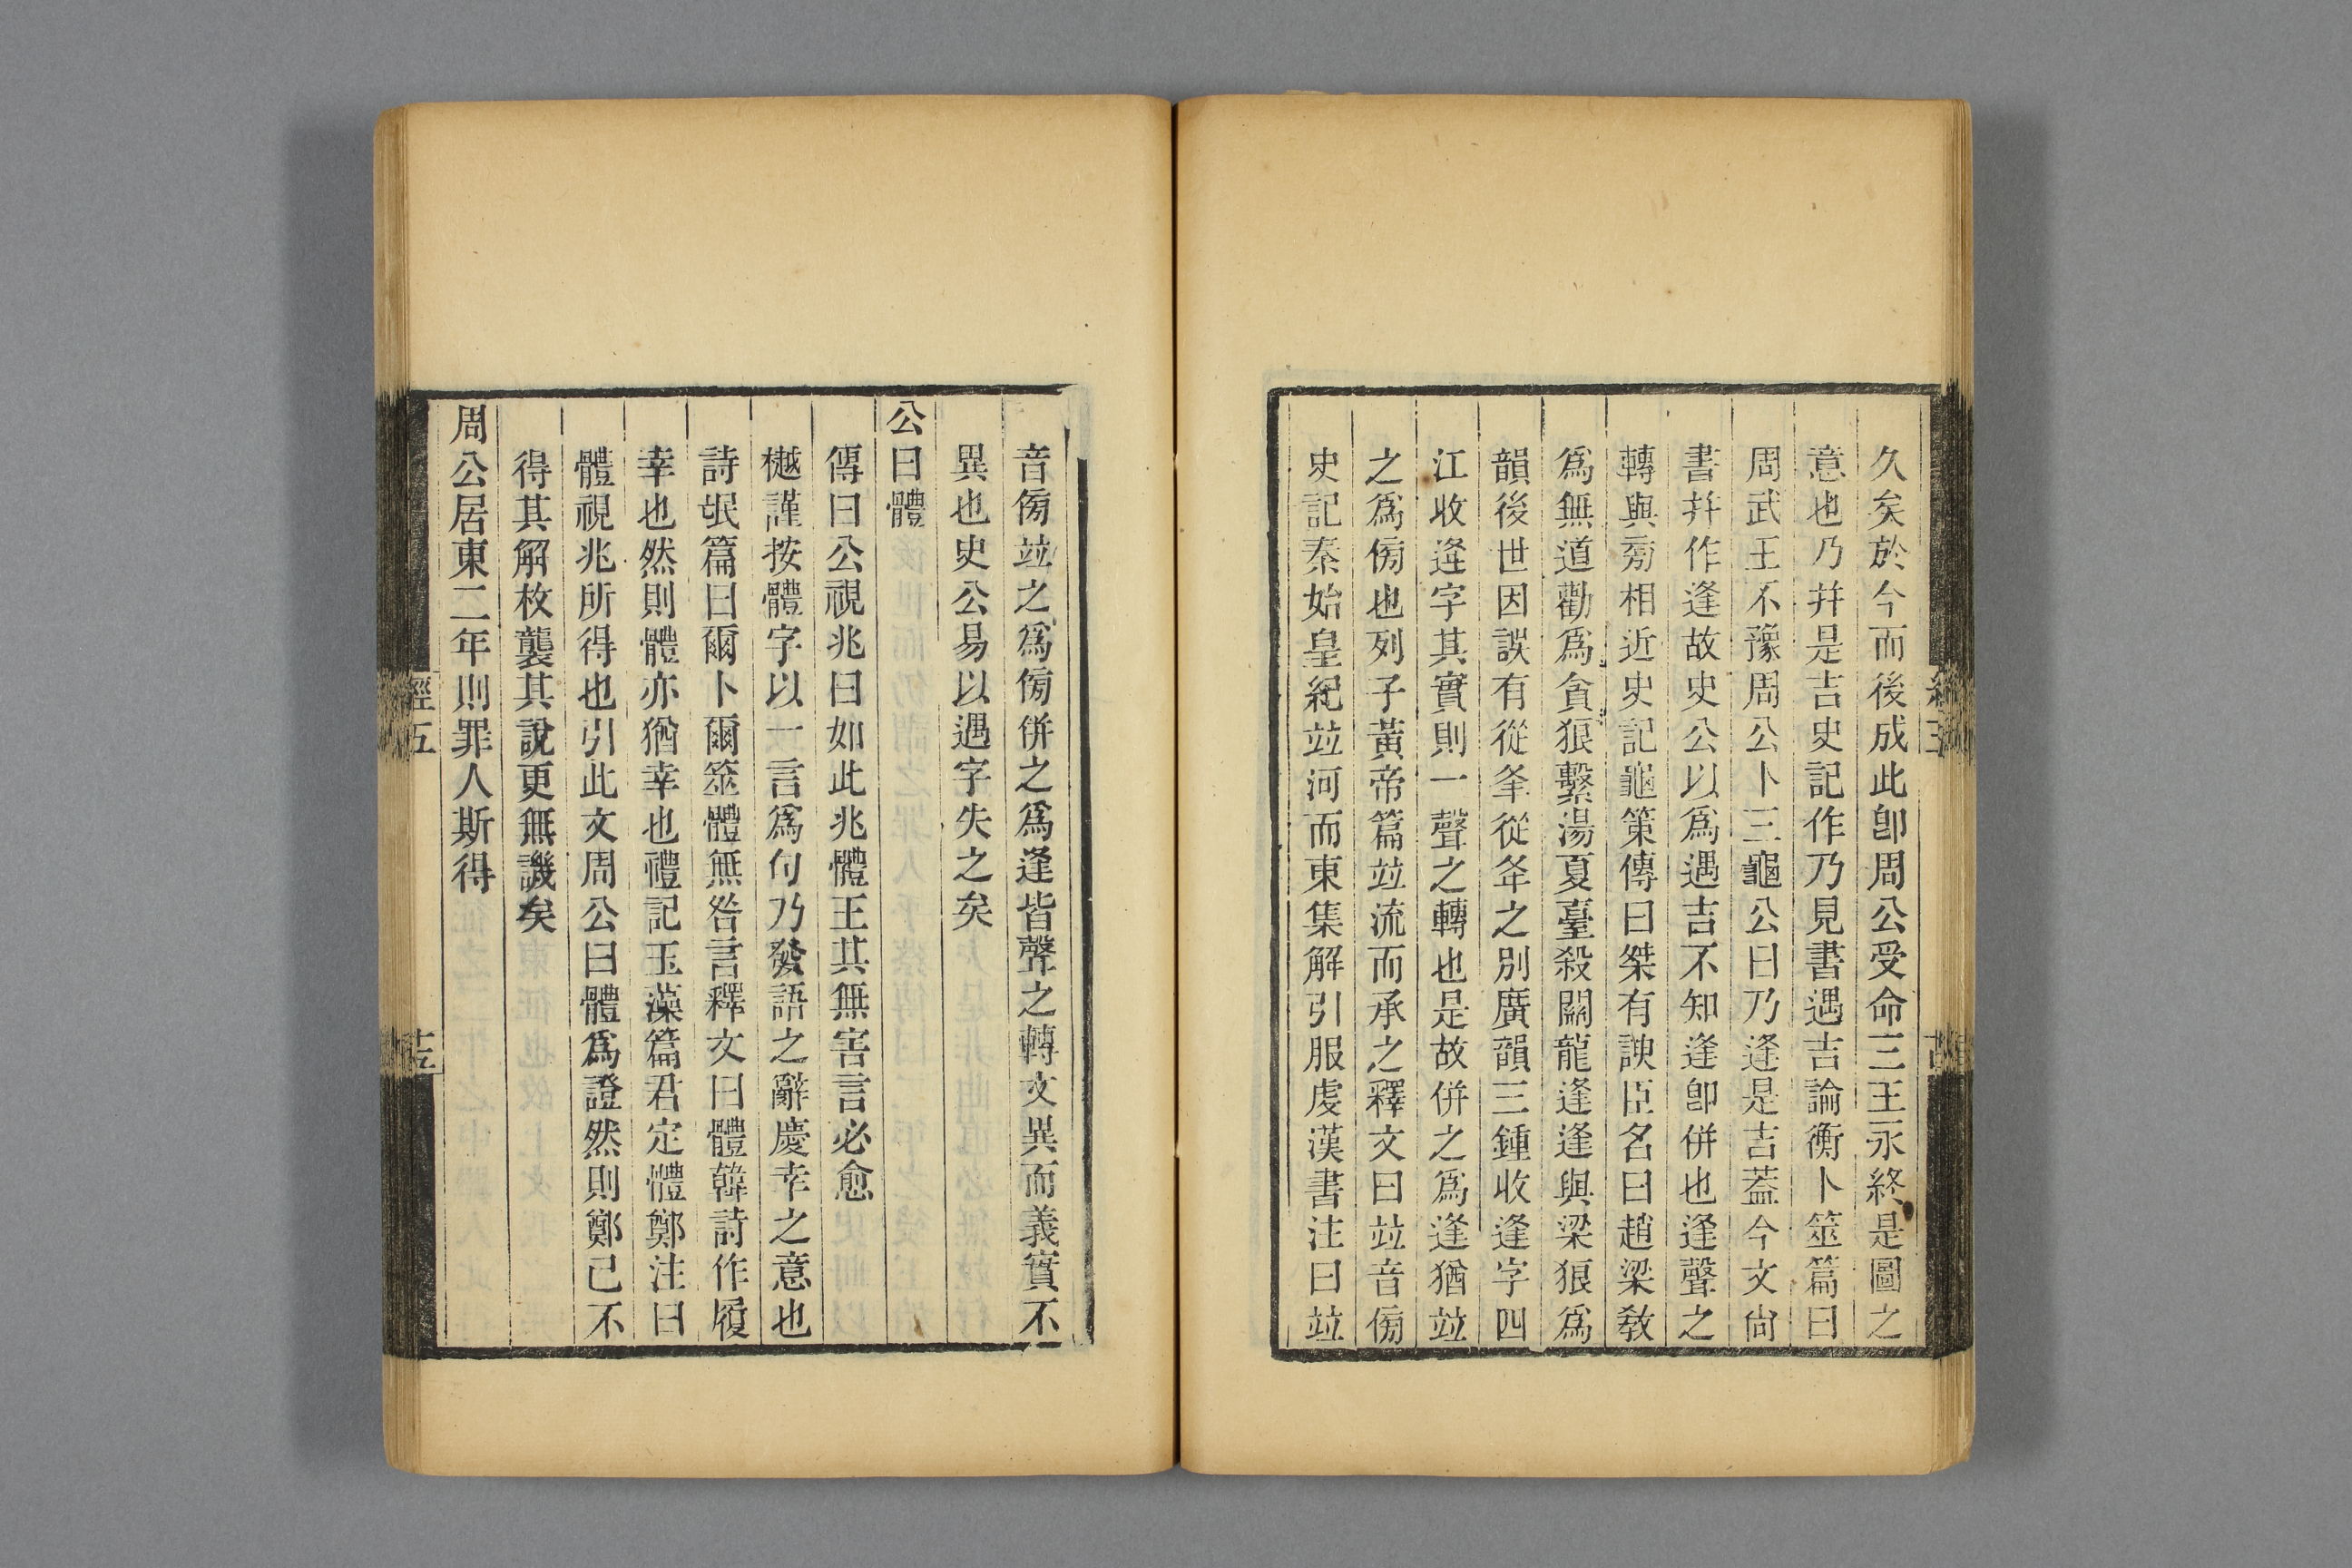 久矣於今而後成此卽周公受命三王永終是圖之
意也乃幷是吉史記作乃見書遇吉論衡卜筮篇曰
周武王不豫周公卜三龜公曰乃逢是吉葢今文尙
書幷作逢故史公以爲遇吉不知逢卽倂也逢聲之
轉與旁相近史記龜策傳曰桀有諛臣名曰趙梁敎
爲無道勸爲貪狼繫湯夏臺殺關龍逢逢與梁狼爲
韻後世因誤有從夆從夅之別廣韻三鍾收逢字四
江收逄字其實則一聲之轉也是故倂之爲逢猶竝
之爲傍也列子黃帝篇竝流而承之釋文曰竝音傍
史記秦始皇紀竝河而東集解引服虔漢書注曰竝
音傍竝之爲傍倂之爲逢皆聲之轉文異而義實不
異也史公易以遇字失之矣
公曰體
傳曰公視兆曰如此兆體王其無害言必愈
樾謹按體字以一言爲句乃發語之辭慶幸之意也
詩氓篇曰爾卜爾筮體無咎言釋文曰體韓詩作履
幸也然則體亦猶幸也禮記玉藻篇君定體鄭注曰
體視兆所得也引此文周公曰體爲證然則鄭已不
得其解枚襲其說更無譏矣
周公居東二年則罪人斯得
經五